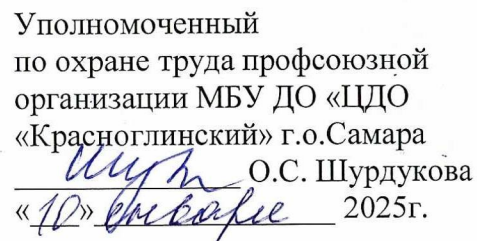 Уполномоченный
по охране труда профсоюзной
организации МБУ ДО «ЦДО
«Красноглинский» г.о.Самара
О.С. Шурдукова
«10» января 2025г.